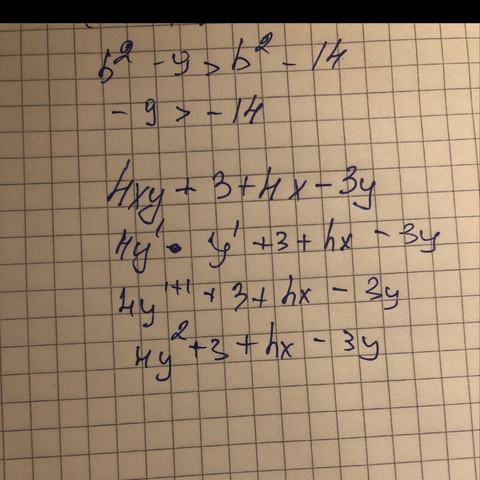 b² - 9 > b² - 14
- 9 > - 14
4xy + 3 + 4x - 3y
4y¹ • y¹ + 3 + 4x - 3y
4y¹⁺¹ + 3 + 4x - 3y
4y² + 3 + 4x - 3y